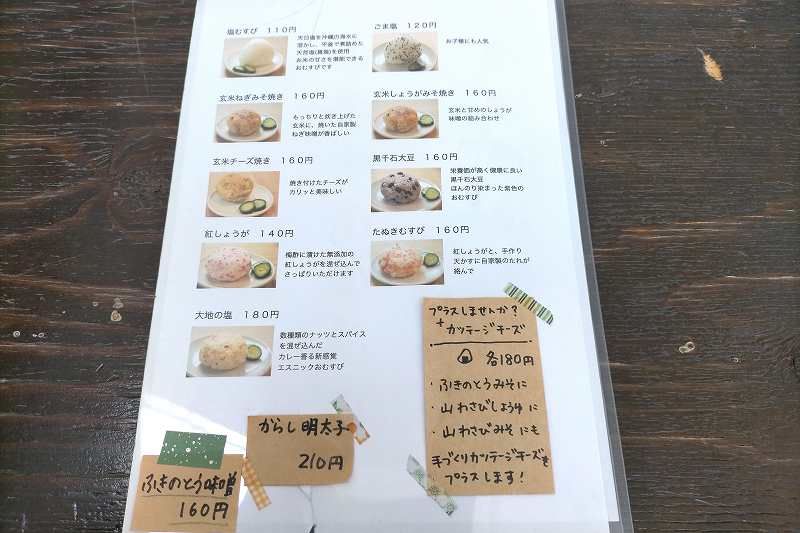 塩むすび 110円
天日塩を沖縄の海水に
溶かし、平釜で煮詰めた
天然塩(最強)を使用
お米の甘さを堪能できる
おむすびです
ごま塩 120円
お子様にも人気
玄米ねぎみそ焼き 160円
もっちりと炊き上げた
玄米に、焼いた自家製
ねぎ味噌が香ばしい
玄米しょうがみそ焼き 160円
玄米と甘めのしょうが
味噌の組み合わせ
玄米チーズ焼き 160円
焼き付けたチーズが
カリッと美味しい
黒千石大豆 160円
栄養価が高く健康に良い
黒千石大豆
ほんのり染まった紫色の
おむすび
紅しょうが 140円
梅酢に漬けた無添加の
紅しょうがを混ぜ込んで
さっぱりいただけます
たぬきむすび 160円
紅しょうがと、手作り
天かすに自家製のたれが
絡んで
大地の塩 180円
数種類のナッツとスパイス
を混ぜ込んだ
カレー香る新感覚
エスニックおむすび
プラスしませんか?
+ カッテージチーズ
各180円
・ふきのとうみそに
・山わさびしょうゆに
・山わさびみそにも
手づくりカッテージチーズを
プラスします!
からし明太子
210円
ふきのとう味噌
160円